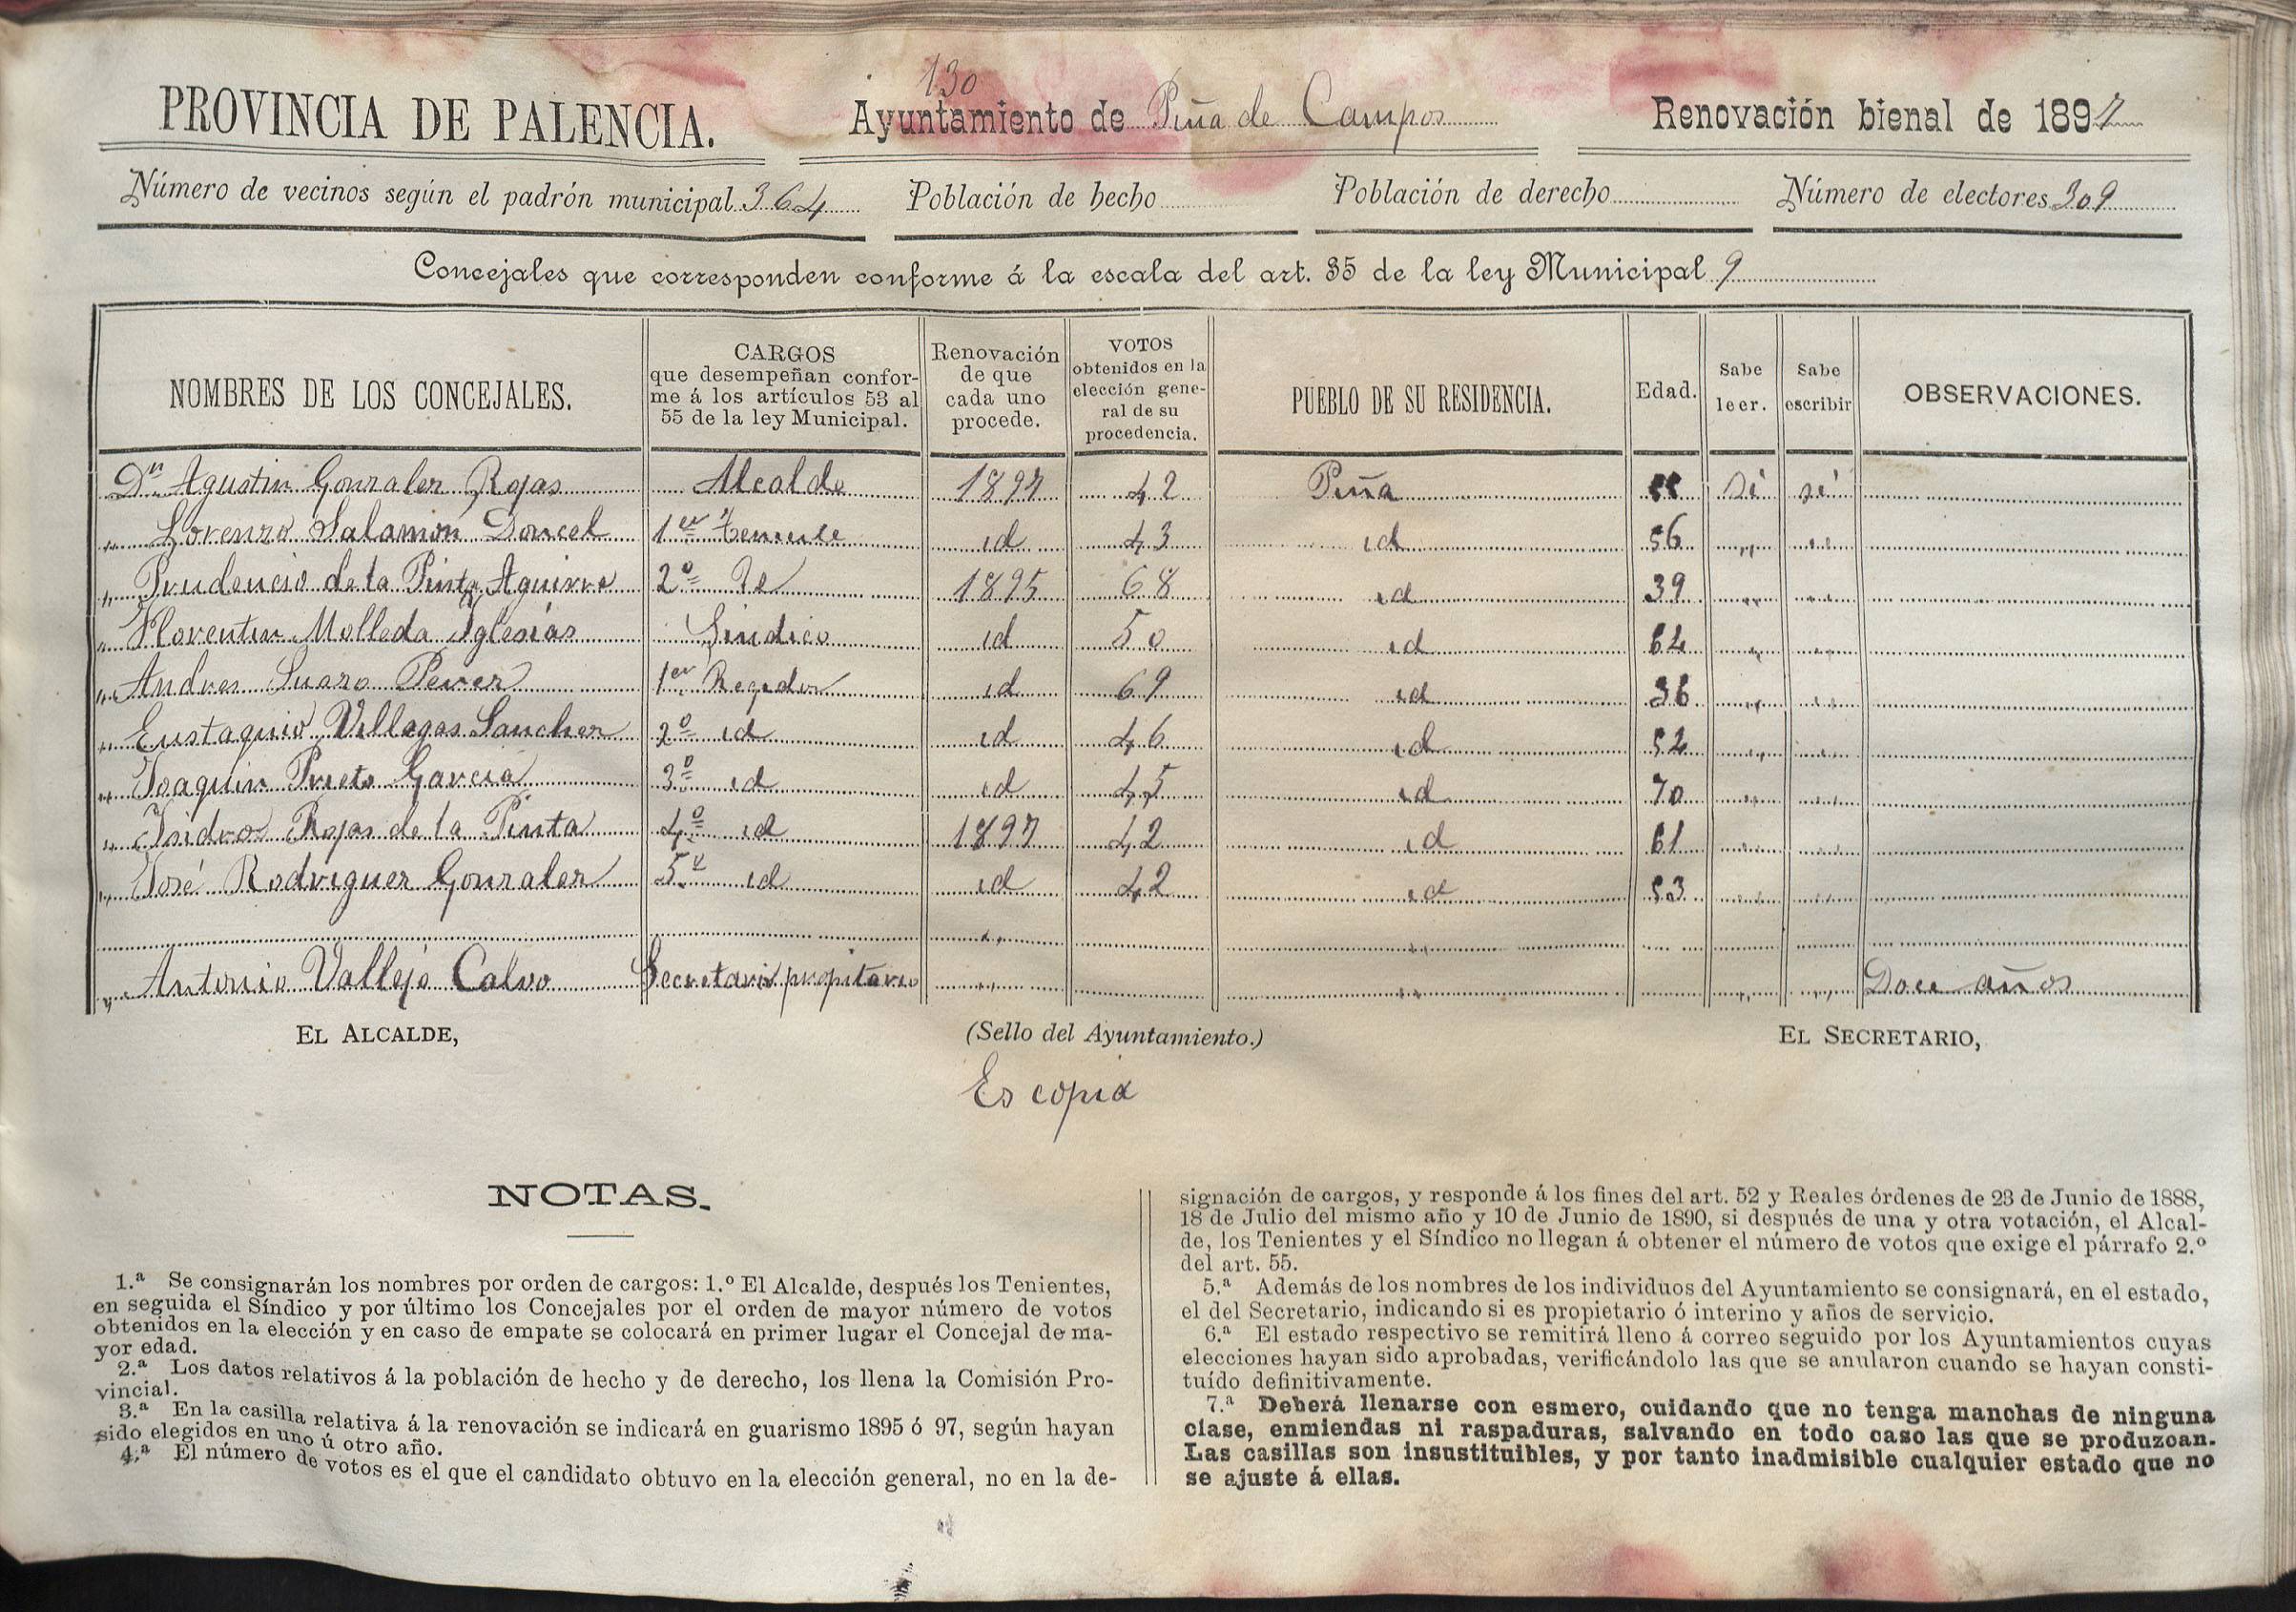 130
PROVINCIA DE PALENCIA. Ayuntamiento de Piña de Campos Renovación bienal de 1897
Número de vecinos según el padrón municipal 364 Población de hecho Población de derecho Número de electores 309
Concejales que corresponden conforme á la escala del art. 35 de la ley Municipal 9
NOMBRES DE LOS CONCEJALES. CARGOS que desempeñan conforme á los artículos 53 al 55 de la ley Municipal. Renovación de que cada uno procede. VOTOS obtenidos en la elección general de su procedencia. PUEBLO DE SU RESIDENCIA. Edad. Sabe leer. Sabe escribir OBSERVACIONES.
Dn Agustin Gonzalez Rojas Alcalde 1897 42 Piña si si
" Lorenzo Salamon Doncel 1er Teniente id 43 id 56 " "
" Prudencio de la Pinta Aguirre 2º Id 1895 68 id 39 " "
" Florentin Molleda Iglesias Sindico id 50 id 62 " "
" Andres Suazo Perez 1er Regidor id 69 id 36 " "
" Eustaquio Villegas Sanchez 2º id id 46 id 52 " "
" Joaquin Prieto Garcia 3º id id 45 id 70 " "
" Isidro Rojas de la Pinta 4º id 1897 42 id 61 " "
" José Rodriguez Gonzalez 5º id id 42 id 53 " "
" "
" Antonio Vallejo Calvo Secretario propitario " " " " Doce años
EL ALCALDE, (Sello del Ayuntamiento.) EL SECRETARIO,
Es copia
NOTAS.
1.ª Se consignarán los nombres por orden de cargos: 1.º El Alcalde, después los Tenientes,
en seguida el Síndico y por último los Concejales por el orden de mayor número de votos
obtenidos en la elección y en caso de empate se colocará en primer lugar el Concejal de ma-
yor edad.
2.ª Los datos relativos á la población de hecho y de derecho, los llena la Comisión Pro-
vincial.
3.ª En la casilla relativa á la renovación se indicará en guarismo 1895 ó 97, según hayan
sido elegidos en uno ú otro año.
4.ª El número de votos es el que el candidato obtuvo en la elección general, no en la de-
signación de cargos, y responde á los fines del art. 52 y Reales órdenes de 23 de Junio de 1888,
18 de Julio del mismo año y 10 de Junio de 1890, si después de una y otra votación, el Alcal-
de, los Tenientes y el Síndico no llegan á obtener el número de votos que exige el párrafo 2.º
del art. 55.
5.ª Además de los nombres de los individuos del Ayuntamiento se consignará, en el estado,
el del Secretario, indicando si es propietario ó interino y años de servicio.
6.ª El estado respectivo se remitirá lleno á correo seguido por los Ayuntamientos cuyas
elecciones hayan sido aprobadas, verificándolo las que se anularon cuando se hayan consti-
tuído definitivamente.
7.ª Deberá llenarse con esmero, cuidando que no tenga manchas de ninguna
clase, enmiendas ni raspaduras, salvando en todo caso las que se produzcan.
Las casillas son insustituibles, y por tanto inadmisible cualquier estado que no
se ajuste á ellas.